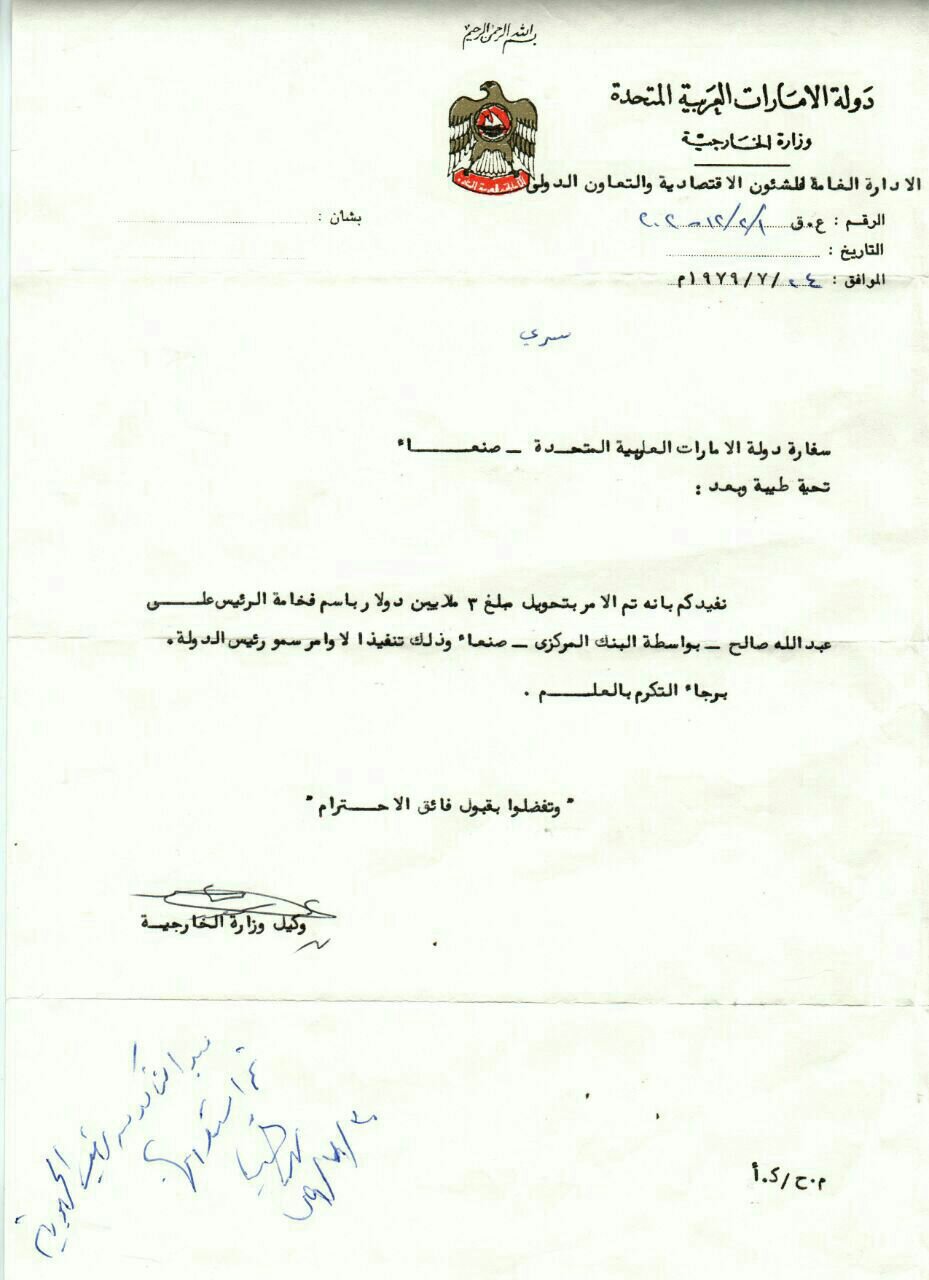 بسم الله الرحمن الرحيم
دولة الامارات العربية المتحدة
وزارة الخارجية
الادارة العامة للشئون الاقتصادية والتعاون الدولى
الرقم : ع.ق
بشان :
التاريخ :
الموافق : ٢٤/٧/١٩٧٩م
سري
سفارة دولة الامارات العربية المتحدة ـ صنعاء
تحية طيبة وبعد :
نفيدكم بانه تم الامر بتحويل مبلغ ٣ ملايين دولار باسم فخامة الرئيس على
عبدالله صالح ـ بواسطة البنك المركزى ـ صنعاء وذلك تنفيذا لاوامر سمو رئيس الدولة.
برجاء التكرم بالعلم .
" وتفضلوا بقبول فائق الاحترام "
وكيل وزارة الخارجية
بعد التأكد من رئيس الجمهورية
تم استلامها
م.ح/ك.أ